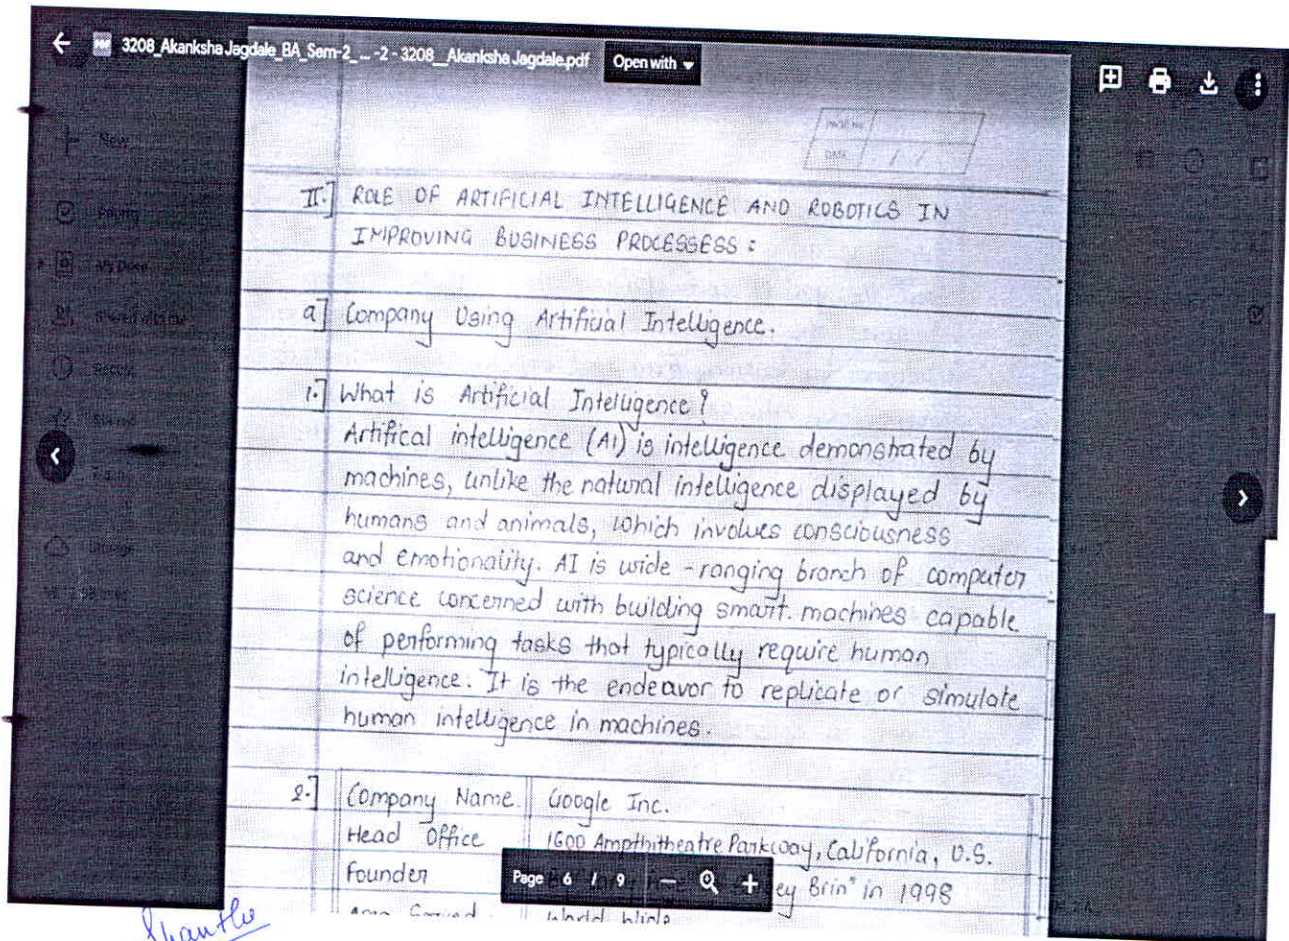 3208_Akanksha Jagdale_BA_Sem-2_ ... -2 - 3208__Akanksha Jagdale.pdf Open with
PAGE No.
DATE / /
New
II.] ROLE OF ARTIFICIAL INTELLIGENCE AND ROBOTICS IN
IMPROVING BUSINESS PROCESSESS :
a] Company Using Artificial Intelligence.
1.] What is Artificial Intelligence?
Artifical intelligence (AI) is intelligence demonstrated by
machines, unlike the natural intelligence displayed by
humans and animals, which involves consciousness
and emotionality. AI is wide-ranging branch of computer
science concerned with building smart machines capable
of performing tasks that typically require human
intelligence. It is the endeavor to replicate or simulate
human intelligence in machines.
2.] Company Name Google Inc.
Head Office 1600 Ampthitheatre Parkway, California, U.S.
Founder ey Brin" in 1998
Page 6 / 9
World Wide
Storage